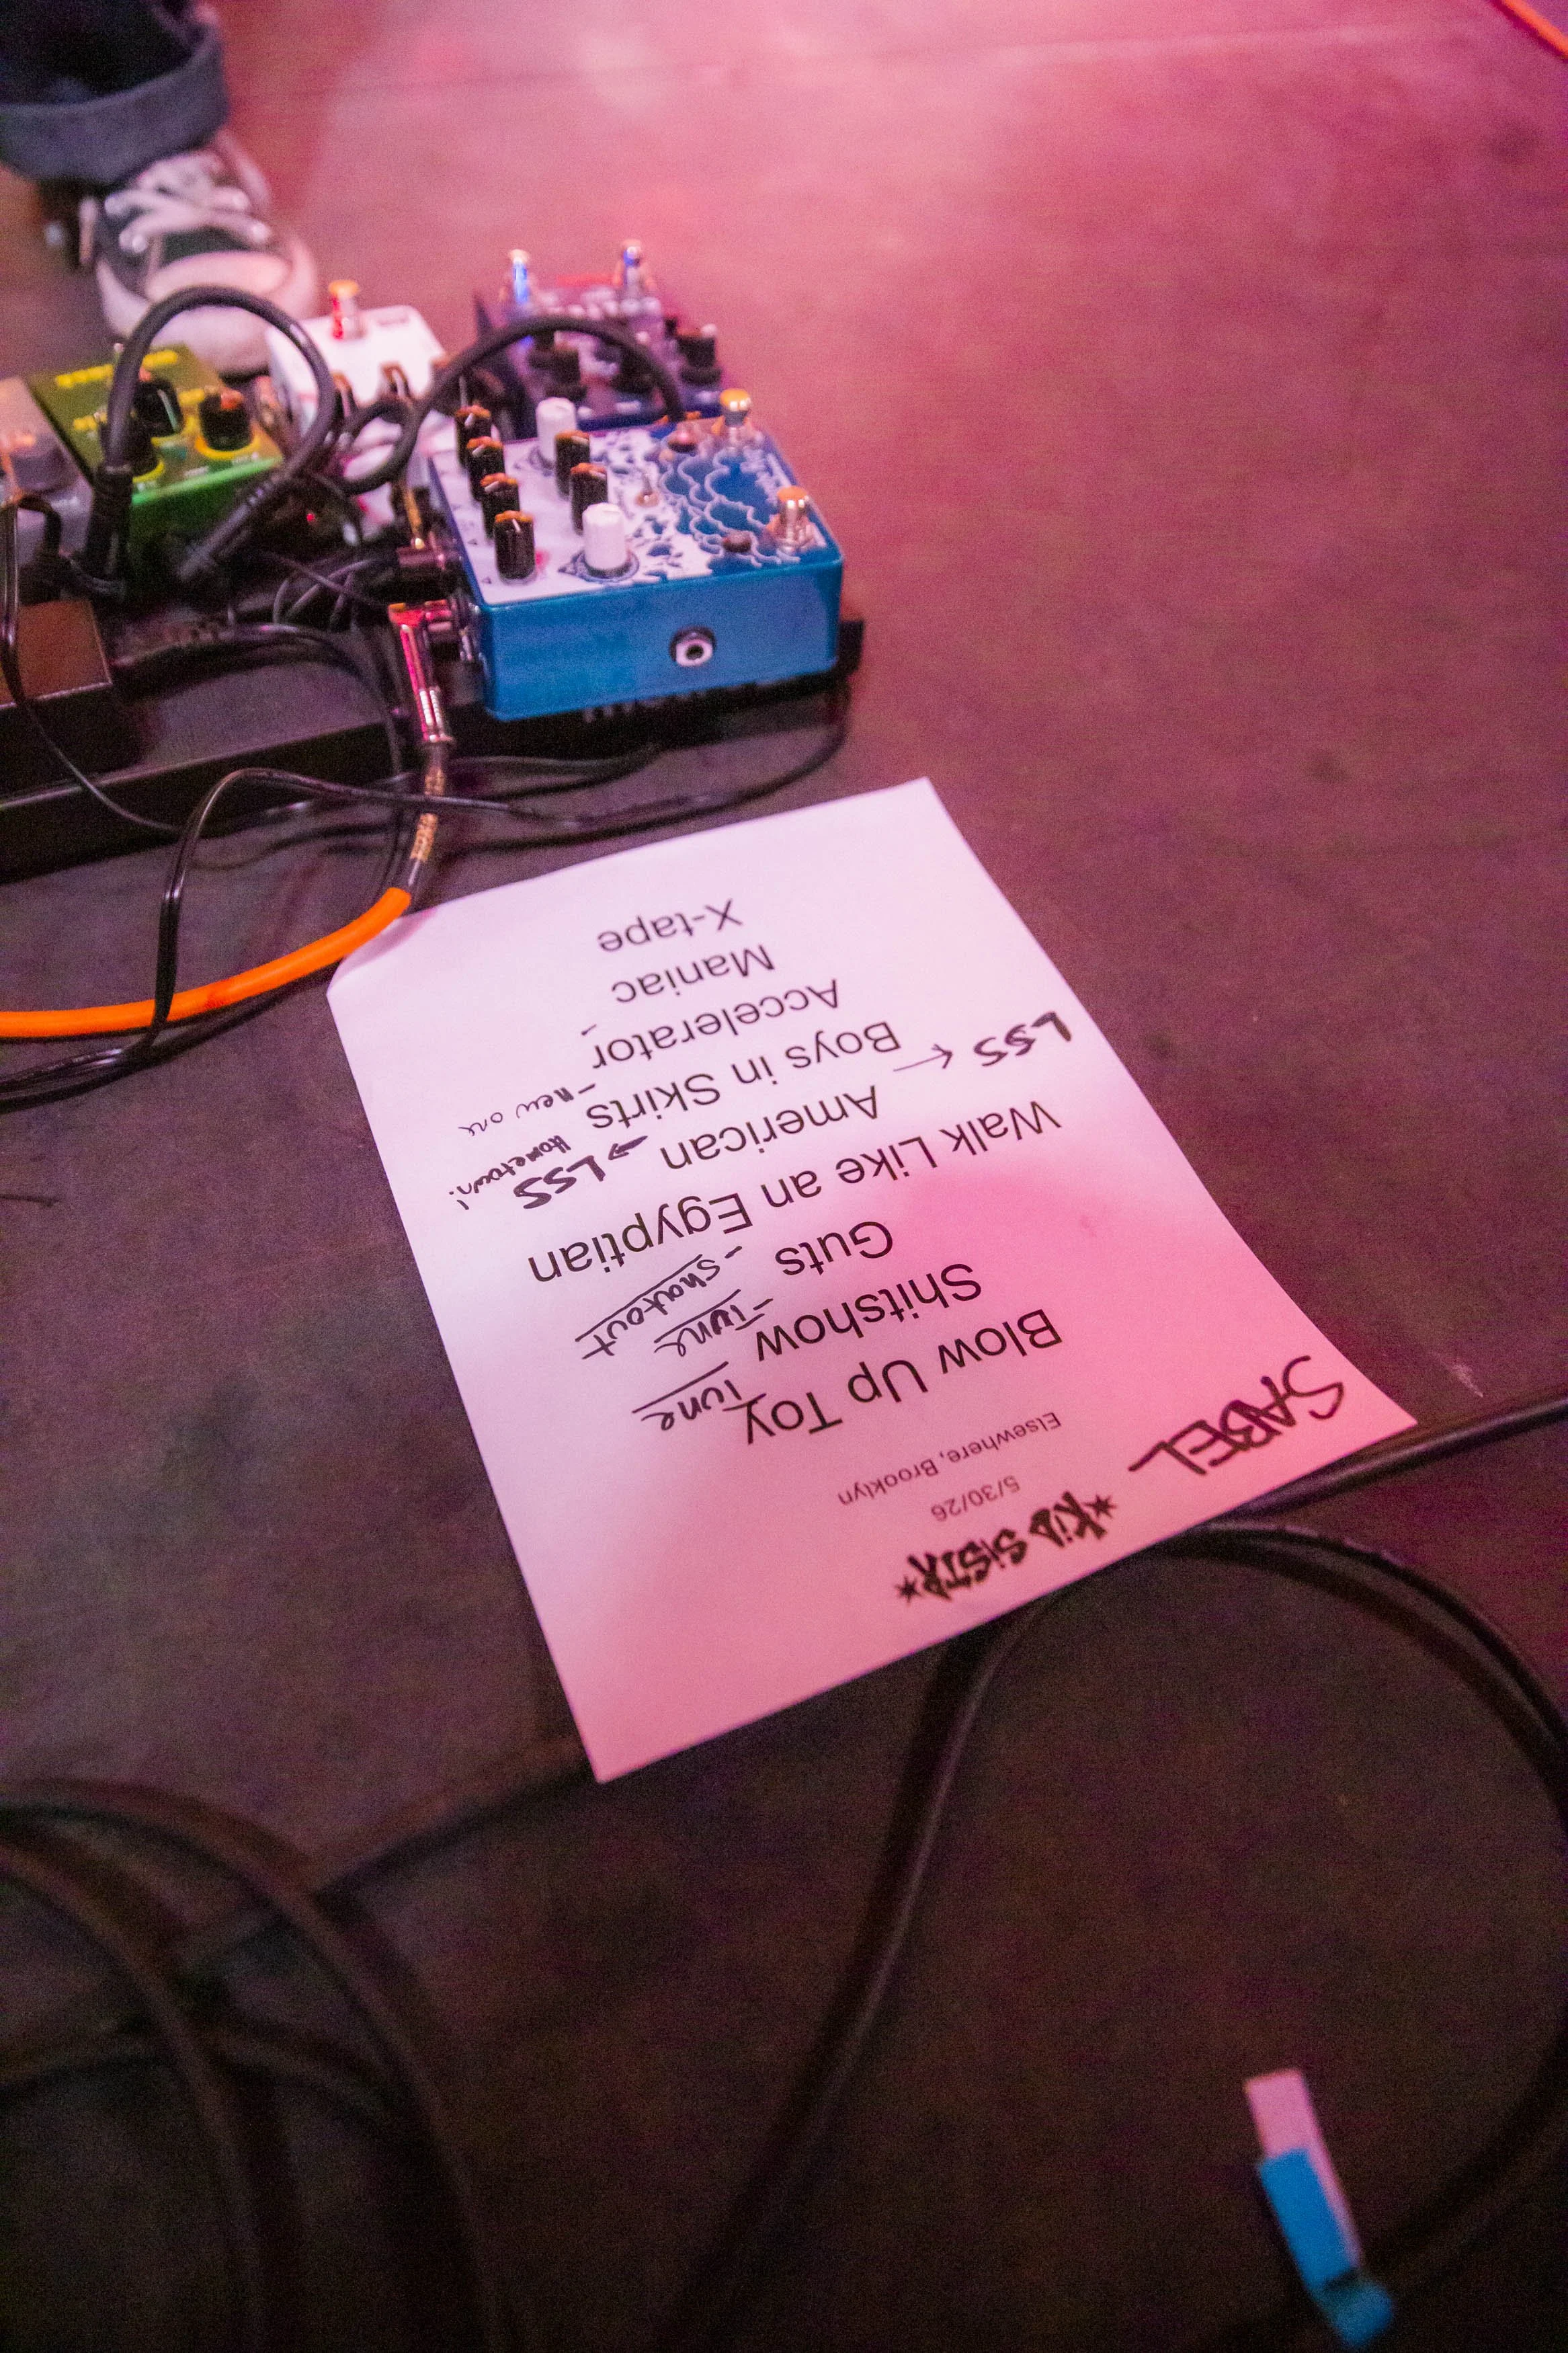 SABEL
*KiD SiSTR*
5/30/26
Elsewhere, Brooklyn
Blow Up Toy Tune
Shitshow - Tune
Guts - shoutout
Walk Like an Egyptian
American → LSS Hometown!
LSS → Boys in Skirts - new one
Accelerator -
Maniac
X-tape